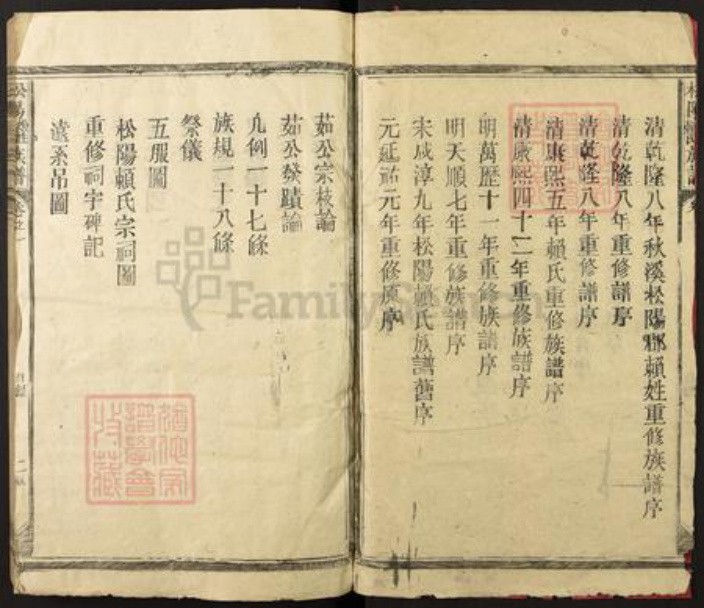 清乾隆八年秋溪松陽郡賴姓重修族譜序
清乾隆八年重修譜序
清乾隆八年重修譜序
清康熙五年賴氏重修族譜序
清康熙四十二年重修族譜序
明萬歷十一年重修族譜序
明天順七年重修族譜序
宋咸淳九年松陽賴氏族譜舊序
元延祐元年重修原序
茹公宗枝論
茹公發蹟論
凡例一十七條
族規一十八條
祭儀
五服圖
松陽賴氏宗祠圖
重修祠宇碑記
遠系吊圖
FamilySearch